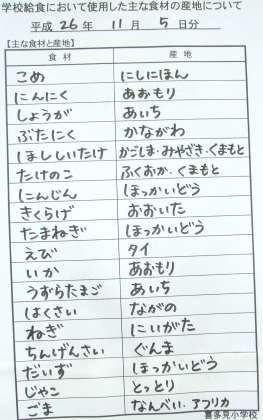 学校給食において使用した主な食材の産地について
平成 26 年 11 月 5 日分
【主な食材と産地】
食材 産地
こめ にしにほん
にんにく あおもり
しょうが あいち
ぶたにく かながわ
ほししいたけ かごしま・みやざき・くまもと
たけのこ ふくおか・くまもと
にんじん ほっかいどう
きくらげ おおいた
たまねぎ ほっかいどう
えび タイ
いか あおもり
うずらたまご あいち
はくさい ながの
ねぎ にいがた
ちんげんさい ぐんま
だいず ほっかいどう
じゃこ とっとり
ごま なんべい・アフリカ
喜多見小学校